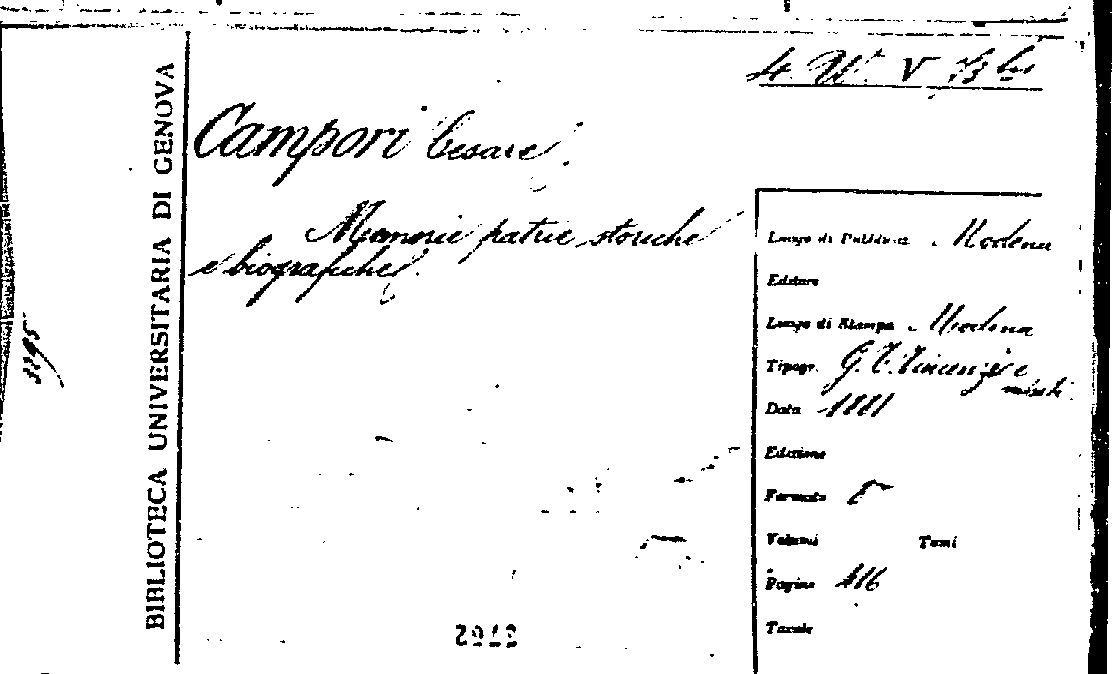 4. W. V. 73 bis
BIBLIOTECA UNIVERSITARIA DI GENOVA
Campori Cesare.
Memorie patrie storiche
e biografiche.
Luogo di Pubblicaz. Modena
Editore
Luogo di Stampa Modena
Tipogr. G. T. Vincenzi e
nipoti
Data 1881
Edizione
Formato 8°
Volumi Tomi
Pagine 416
Tavole